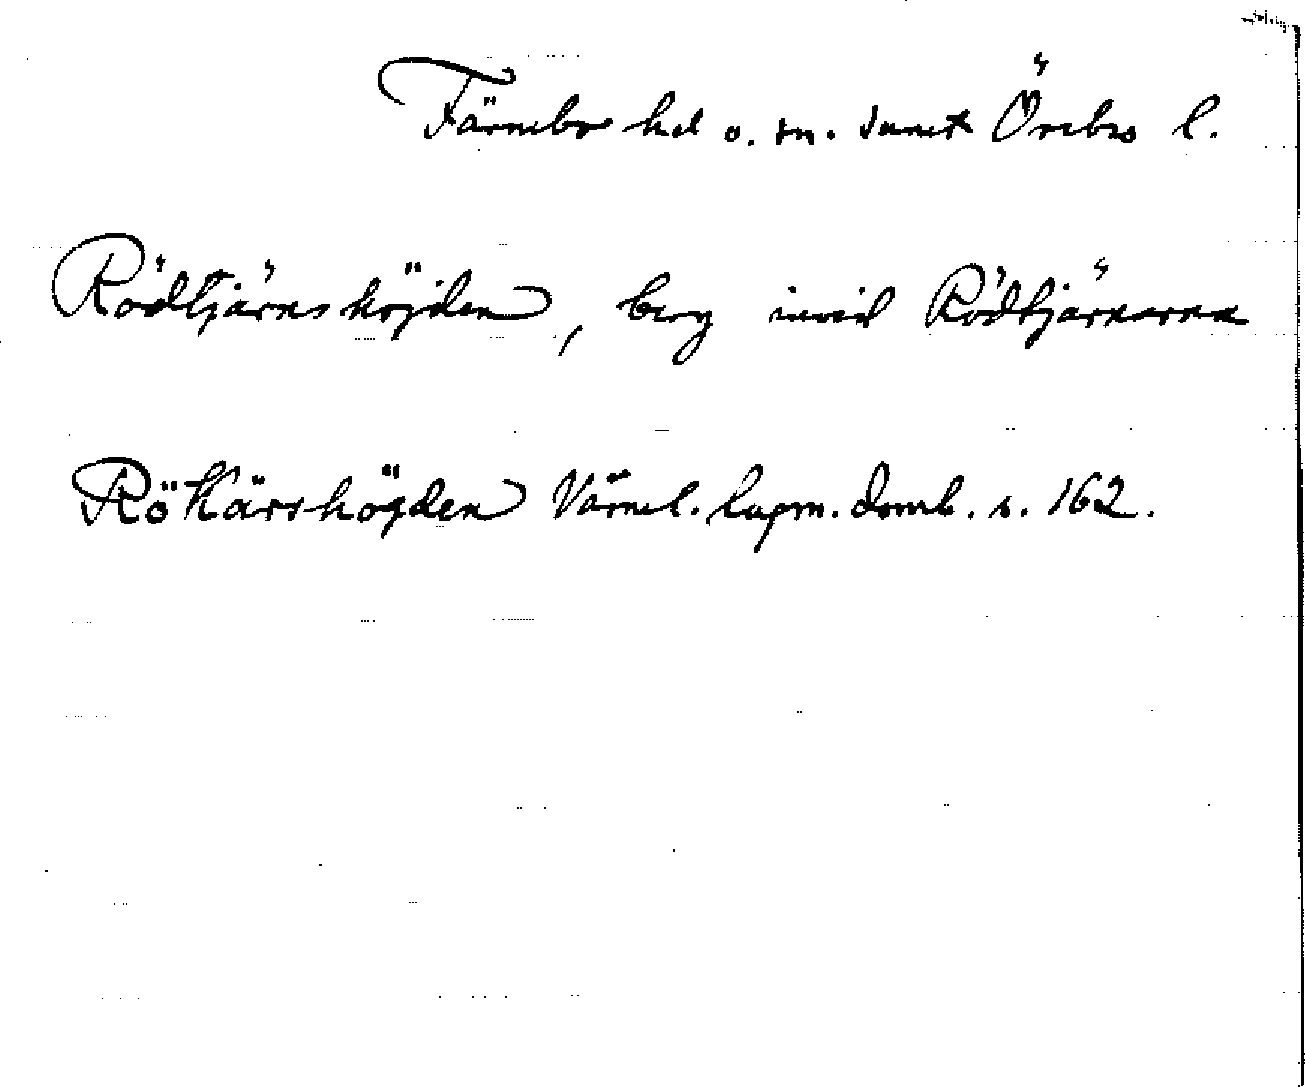 Färnebo hd o. sn. samt Örebro l.
Rödtjärnshöjden, berg invid Rödtjärnarna
Rökärrshögden Värml. lagm. domb. s. 162.